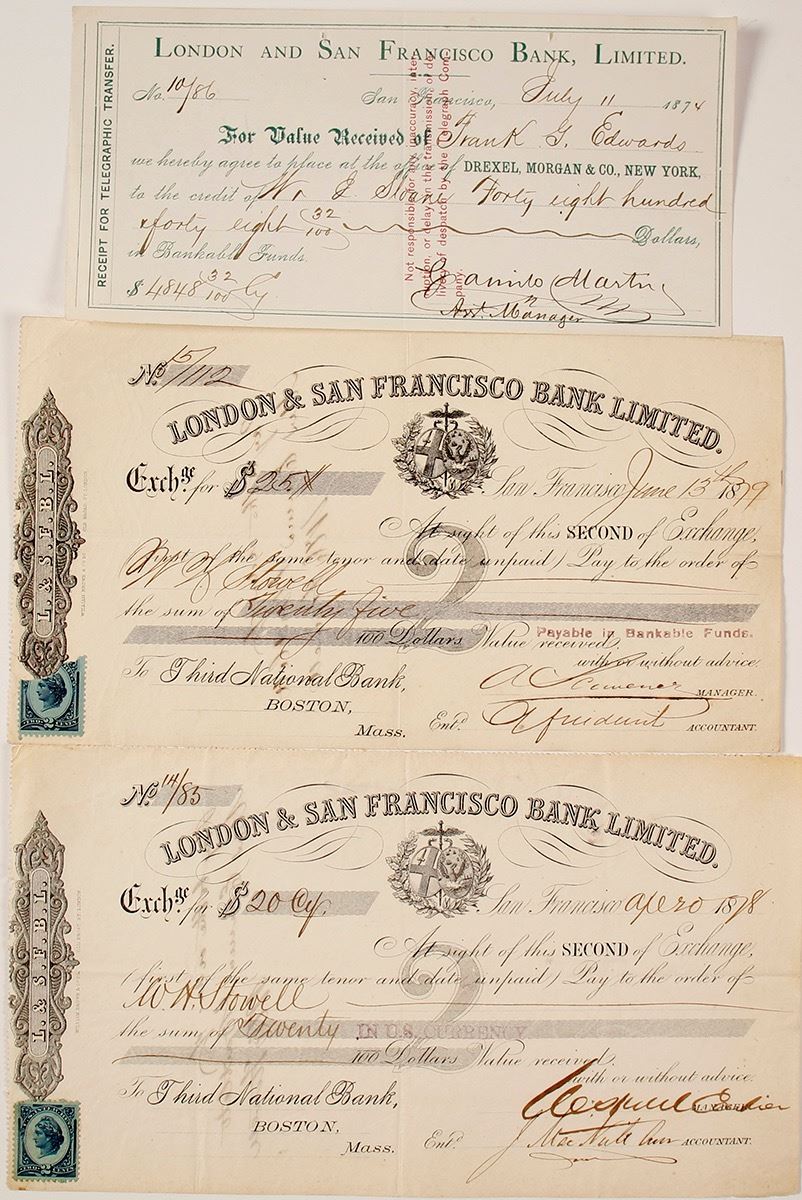 LONDON AND SAN FRANCISCO BANK, LIMITED.
RECEIPT FOR TELEGRAPHIC TRANSFER.
No. 10/86 San Francisco, July 11 1874
For Value Received of Frank G. Edwards
we hereby agree to place at the office of DREXEL, MORGAN & CO., NEW YORK,
to the credit of W. & J. Sloane Forty eight hundred
& forty eight 32/100 Dollars,
in Bankable Funds.
$ 4848 32/100 Cy
Camilo Martin
Asst. Manager
Not responsible for any inaccuracy, inter-
ruption, or delay in the transmission, or de-
livery of despatch by the Telegraph Com-
pany.
No. 15/112
LONDON & SAN FRANCISCO BANK LIMITED.
L. & S. F. B. L.
Exchge for $ 25 San Francisco June 13th 1879
At sight of this SECOND of Exchange,
(first of the same tenor and date unpaid) Pay to the order of
W H Stowell
the sum of Twenty five
100 Dollars Value received, Payable in Bankable Funds.
with or without advice.
To Third National Bank,
BOSTON,
Mass.
MANAGER.
Entd. ACCOUNTANT.
No. 14/85
LONDON & SAN FRANCISCO BANK LIMITED.
L. & S. F. B. L.
Exchge for $ 20 Cy. San Francisco Ap 20 1878
At sight of this SECOND of Exchange,
(first of the same tenor and date unpaid) Pay to the order of
W. H. Stowell
the sum of Twenty IN U.S. CURRENCY
100 Dollars Value received,
with or without advice.
To Third National Bank,
BOSTON,
Mass.
MANAGER
Entd. ACCOUNTANT.